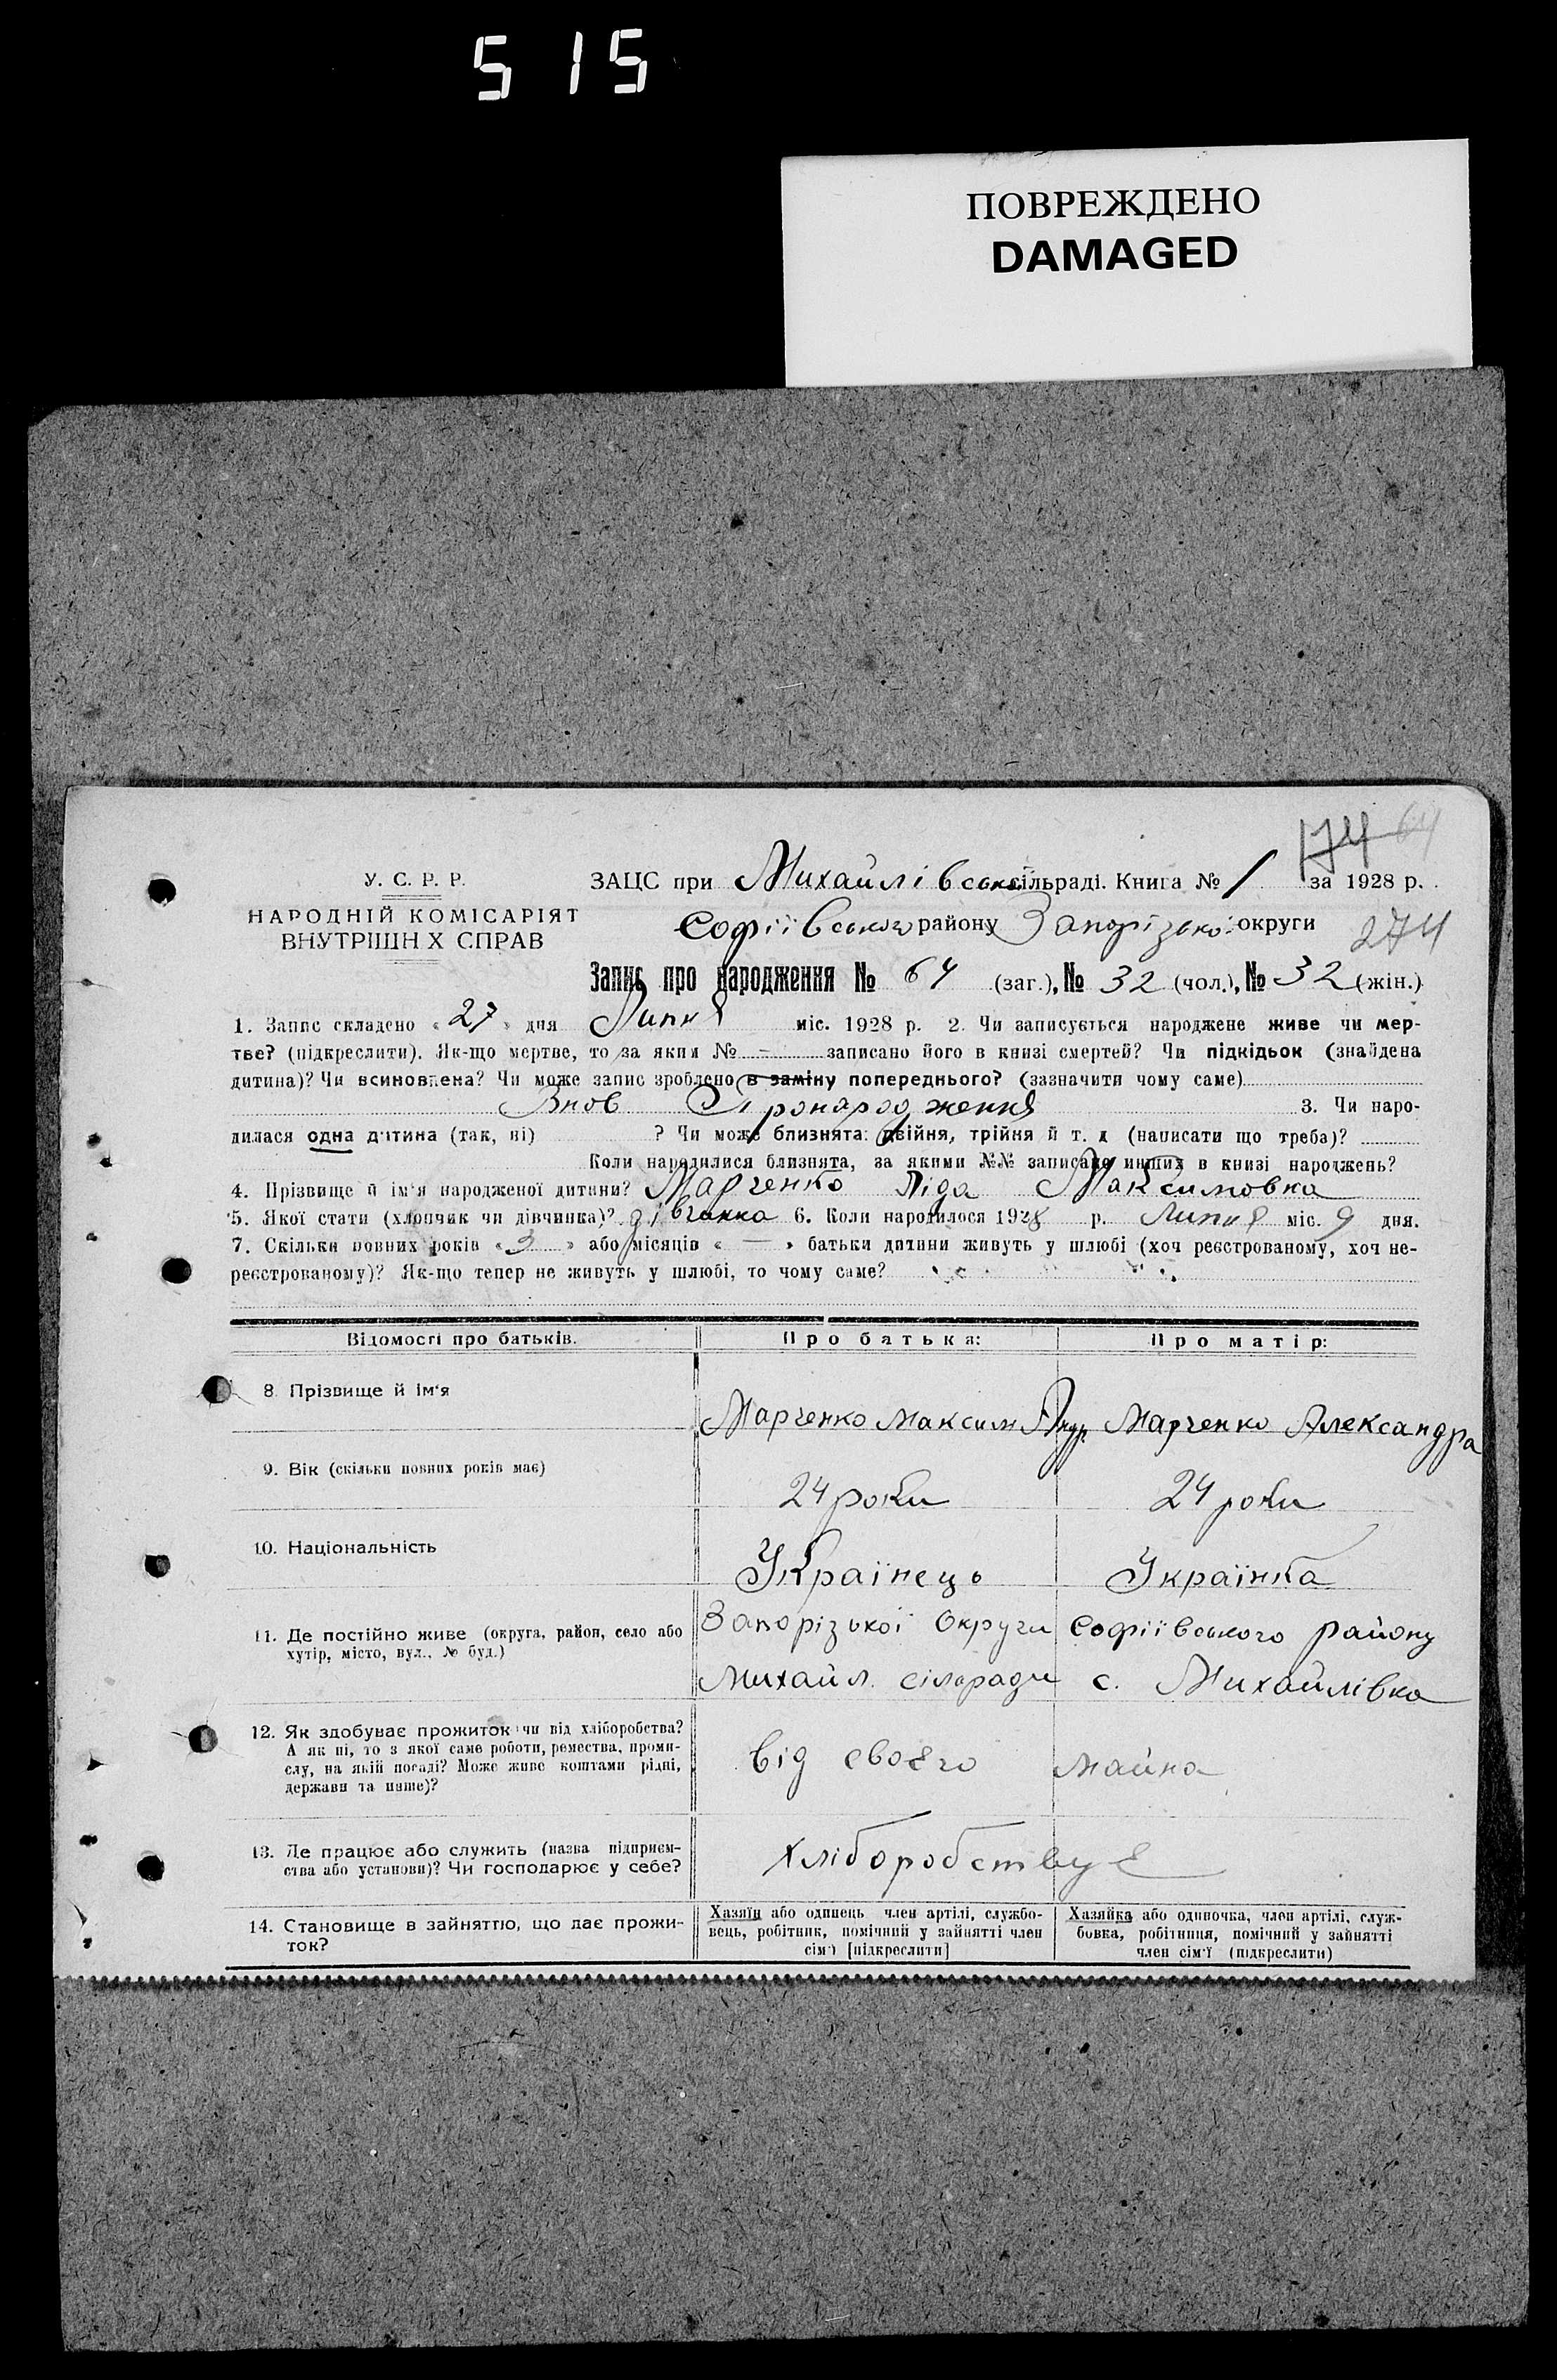 515
ПОВРЕЖДЕНО
DAMAGED
174 64
У. С. Р. Р.
НАРОДНІЙ КОМІСАРІЯТ
ВНУТРІШН Х СПРАВ
ЗАЦС при Михайлівськ. сільраді. Книга № 1 за 1928 р.
Софіївського району Запорізької округи 274
Запис про народження № 64 (заг.), № 32 (чол.), № 32 (жін.)
1. Запис складено «27» дня Липня міс. 1928 р. 2. Чи записується народжене живе чи мер-
тве? (підкреслити). Як-що мертве, то за яким № - записано його в книзі смертей? Чи підкідьок (знайдена
дитина)? Чи всиновлена? Чи може запис зроблено в заміну попереднього? (зазначити чому саме)
Внов Пронародження 3. Чи наро-
дилася одна дитина (так, ні) ? Чи може близнята: двійня, трійня й т. д (написати що треба)?
Коли народилися близнята, за якими №№ записано инших в книзі народжень?
4. Прізвище й ім'я народженої дитини? Марченко Ліда Максимовна
5. Якої стати (хлопчик чи дівчинка)? дівчинка 6. Коли народилося 1928 р. Липня міс. 9 дня.
7. Скільки повних років «3» або місяців « — » батьки дитини живуть у шлюбі (хоч реєстрованому, хоч не-
реєстрованому)? Як-що тепер не живуть у шлюбі, то чому саме?
Відомості про батьків. Про батька: Про матір:
8. Прізвище й ім'я
Марченко Максим Андр. Марченко Александра
9. Вік (скільки повних років має)
24 роки 24 роки
10. Національність
Українець Українка
11. Де постійно живе (округа, район, село або
хутір, місто, вул., № буд.)
Запорізької Округи Софіївського району
Михайл. сільради с. Михайлівка
12. Як здобуває прожиток чи від хліборобства?
А як ні, то з якої саме роботи, ремества, проми-
слу, на якій посаді? Може живе коштами рідні,
держави та инше)?
від своєго майна
13. Де працює або служить (назва підприєм-
ства або установи)? Чи господарює у себе?
Хліборобствує
14. Становище в зайняттю, що дає прожи-
ток?
Хазяїн або одинець член артілі, службо-
вець, робітник, помічний у зайнятті член
сім'ї [підкреслити]
Хазяйка або одиночка, член артілі, служ-
бовка, робітниця, помічний у зайнятті
член сім'ї (підкреслити)